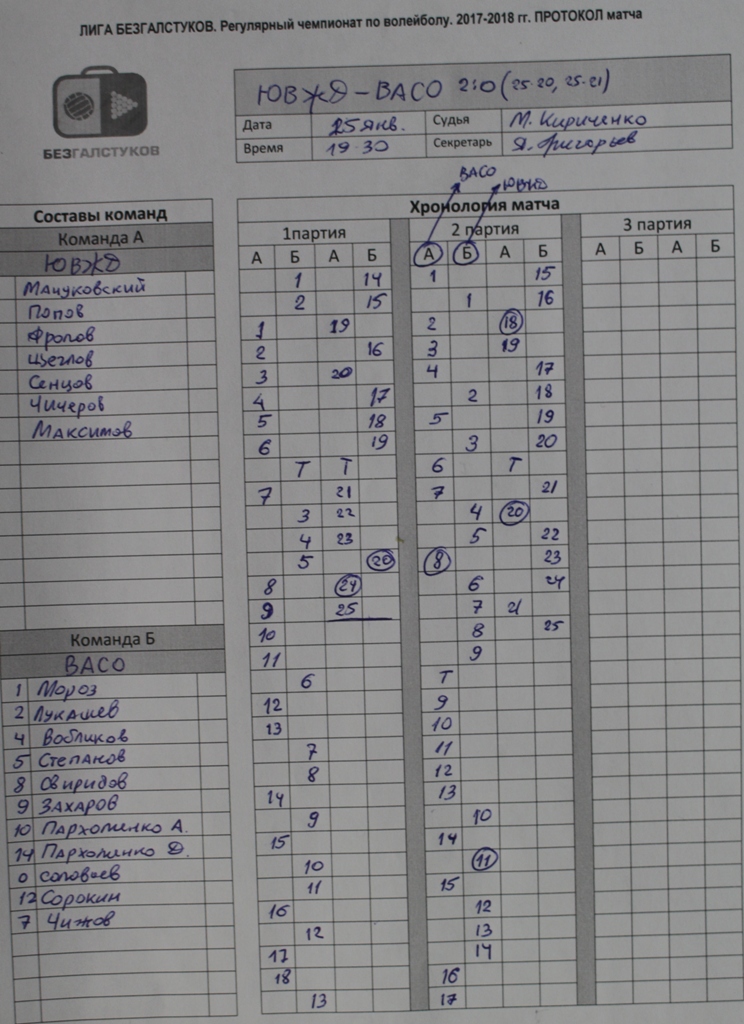 ЛИГА БЕЗГАЛСТУКОВ. Регулярный чемпионат по волейболу. 2017-2018 гг. ПРОТОКОЛ матча
БЕЗГАЛСТУКОВ
ЮВЖД - ВАСО 2:0 (25-20, 25-21)
Дата 25 янв. Судья М. Кириченко
Время 19 30 Секретарь Я. Григорьев
ВАСО
ЮВЖД
Составы команд
Команда А
ЮВЖД
Мачуковский
Попов
Фролов
Щеглов
Сенцов
Чичеров
Максимов
Команда Б
ВАСО
1 Мороз
2 Лукашев
4 Вобликов
5 Степанов
8 Свиридов
9 Захаров
10 Пархоменко А.
14 Пархоменко Д.
0 Соловьев
12 Сорокин
7 Чижов
Хронология матча
1партия 2 партия 3 партия
А Б А Б А Б А Б А Б А Б
1 14 1 15
2 15 1 16
1 19 2 18
2 16 3 19
3 20 4 17
4 17 2 18
5 18 5 19
6 19 3 20
Т Т 6 Т
7 21 7 21
3 22 4 20
4 23 5 22
5 20 8 23
8 24 6 24
9 25 7 21
10 8 25
11 9
6 Т
12 9
13 10
7 11
8 12
14 13
9 10
15 14
10 11
11 15
16 12
12 13
17 14
18 16
13 17